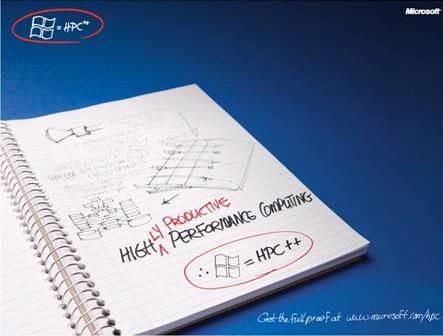 = HPC++
Microsoft
LY PRODUCTIVE
HIGH ^ PERFORMANCE COMPUTING
∴ = HPC++
Get the full proof at www.microsoft.com/hpc